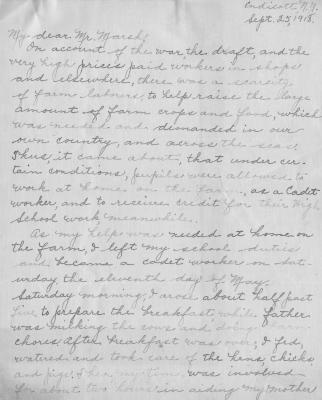 Endicott, N.Y.
Sept. 25, 1918.
My dear Mr. Marsh;
On account of the war, the draft, and the
very high prices paid workers in shops
and elsewhere, there was a scarcity
of farm laborers, to help raise the large
amount of farm crops and food, which
was needed and demanded in our
own country, and across the seas.
Thus, it came about, that under cer-
tain conditions, pupils were allowed to
work at home on the farm, as a Cadet
worker, and to receive credit for their High
School work meanwhile.
As my help was needed at home on
the farm, I left my school duties
and became a cadet worker on Sat-
urday the eleventh day of May.
Saturday morning, I arose about half past
five to prepare the breakfast while father
was milking the cows and doing
chores. After breakfast was over, I fed,
watered and took care of the hens, chicks
and pigs. Then my time was involved
for about two hours in aiding my mother